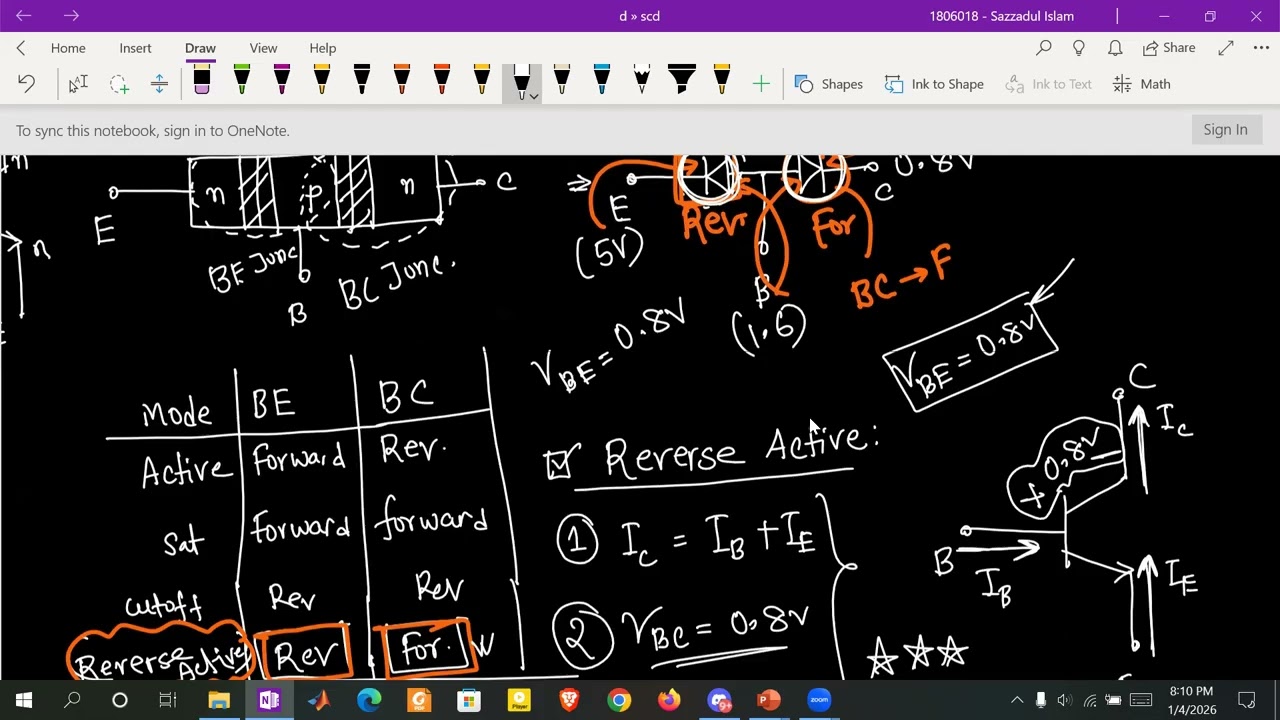 d » scd
1806018 - Sazzadul Islam
Home Insert Draw View Help
Share
Shapes
Ink to Shape
Ink to Text
Math
To sync this notebook, sign in to OneNote.
Sign In
n
E
n p n
C
BE Junc
BC Junc.
B
⇒
E
(5V)
Rev
For
0.8V
C
B
(1.6)
BC → F
V_BE = 0.8V
V_BE = 0.8V
Mode BE BC
Active Forward Rev.
Sat Forward forward
cutoff Rev Rev
Reverse Active Rev For.
☑ Reverse Active:
① I_C = I_B + I_E
② V_BC = 0.8V
C
I_C
+ 0.8V –
B
I_B
I_E
☆☆☆
Player
zoom
8:10 PM
1/4/2026